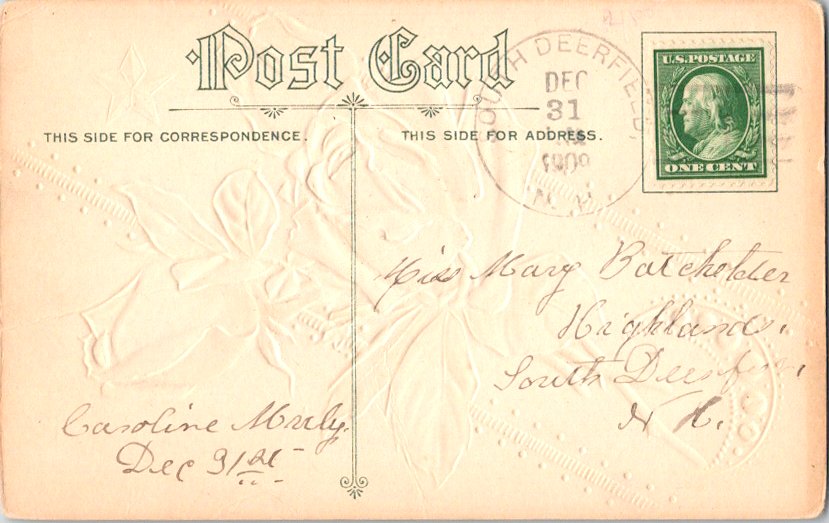 Post Card
THIS SIDE FOR CORRESPONDENCE.
THIS SIDE FOR ADDRESS.
SOUTH DEERFIELD,
DEC
31
1909
N.H.
U.S. POSTAGE
ONE CENT
Miss Mary Batchelder
Highland,
South Deerfield,
N H.
Caroline
Dec 31st